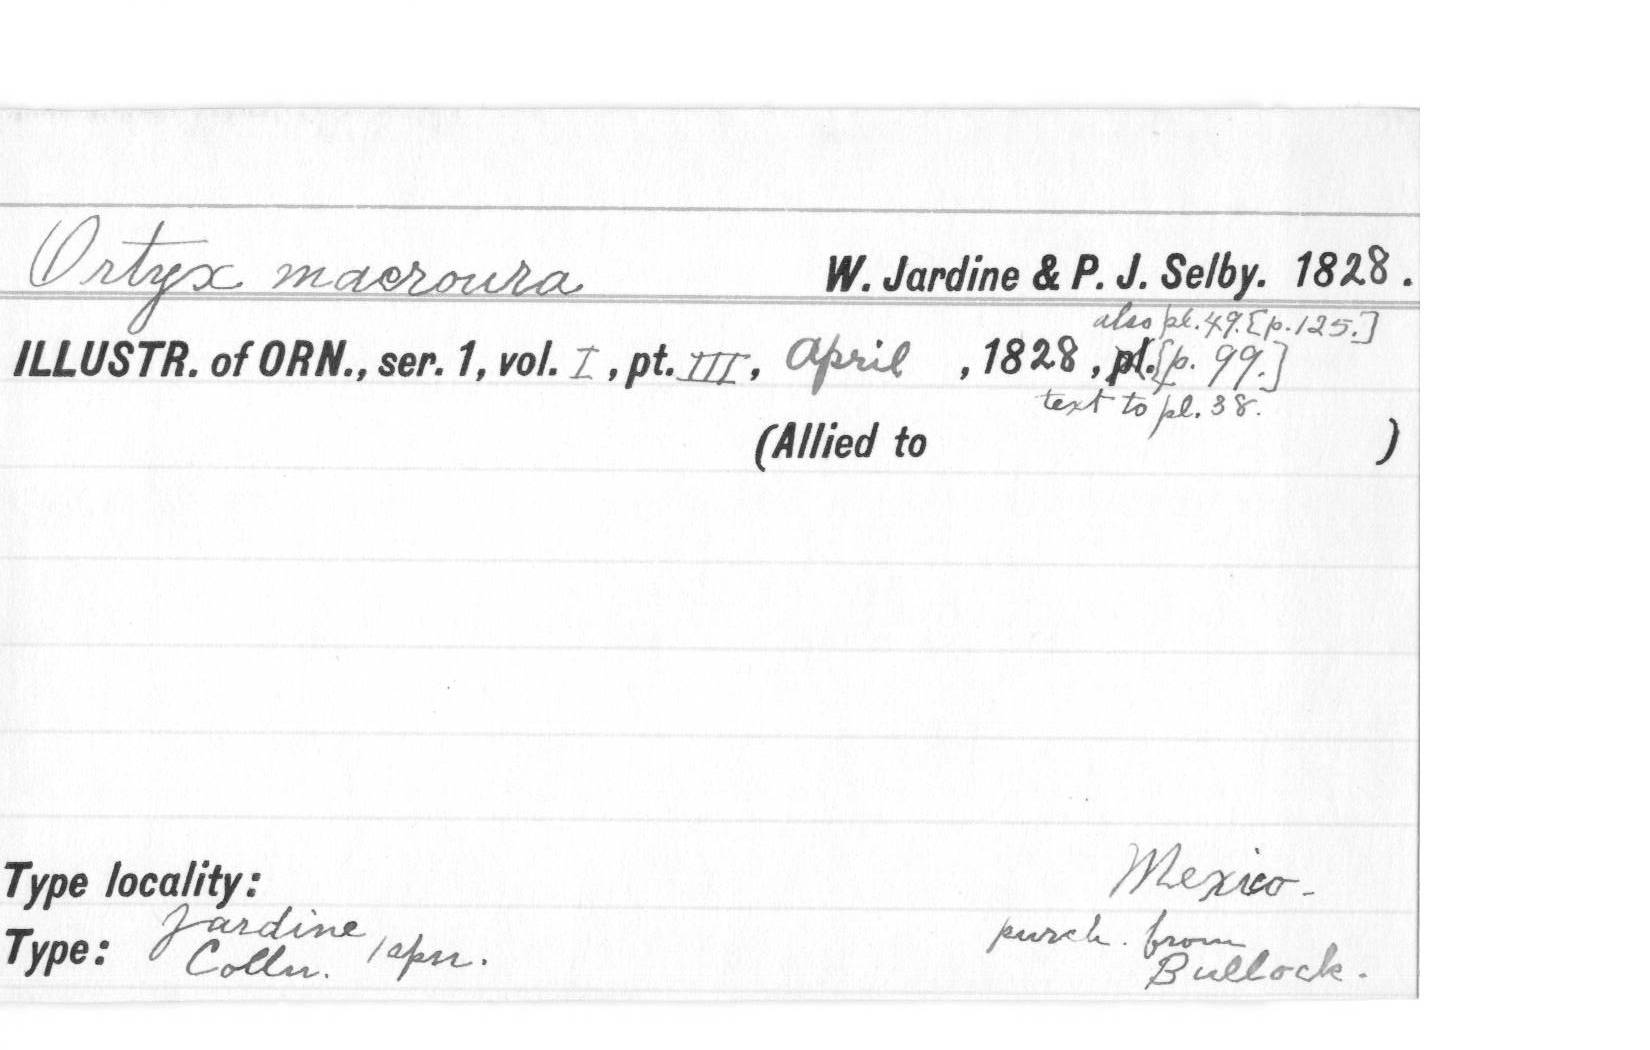 Ortyx macroura W. Jardine & P. J. Selby. 1828.
also pl. 49. [p. 125.]
ILLUSTR. of ORN., ser. 1, vol. I, pt. III, April, 1828, pl. [p. 99.]
text to pl. 38.
(Allied to )
Type locality: Mexico -
Type: Jardine Colln. 1 spn. purch. from
Bullock.